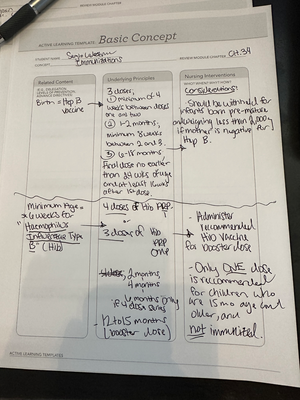 REVIEW MODULE CHAPTER
ACTIVE LEARNING TEMPLATE:
Basic Concept
STUDENT NAME
CONCEPT
Immunizations
REVIEW MODULE CHAPTER
CH.34
Related Content
(E.G., DELEGATION,
LEVELS OF PREVENTION,
ADVANCE DIRECTIVES)
Birth = Hep B
vaccine
Minimum Age =
6 weeks for
Haemophilus
Influenzae Type
B (Hib)
Underlying Principles
3 doses;
① minimum of 4
weeks between doses
one and two
② 1-2 months,
minimum 8 weeks
between 2 and 3.
③ 6-18 months.
Final dose no earlier
than 24 wks of age
and at least 16 wks
after 1st dose.
4 doses of Hib PRP
or
3 doses of Hib
PRP
OMP
2 months,
4 months
if 4 months only
- 12 to 15 months
(booster dose)
Nursing Interventions
WHO? WHEN? WHY? HOW?
Considerations:
Should be withheld for
infants born pre-mature
and weighing less than 2,000g
if mother is negative for
Hep B.
- Administer
recommended
Hib vaccine
for booster dose
- Only ONE dose
is recommended
for children who
are 15 mo age and
older, and
not immunized.
ACTIVE LEARNING TEMPLATES